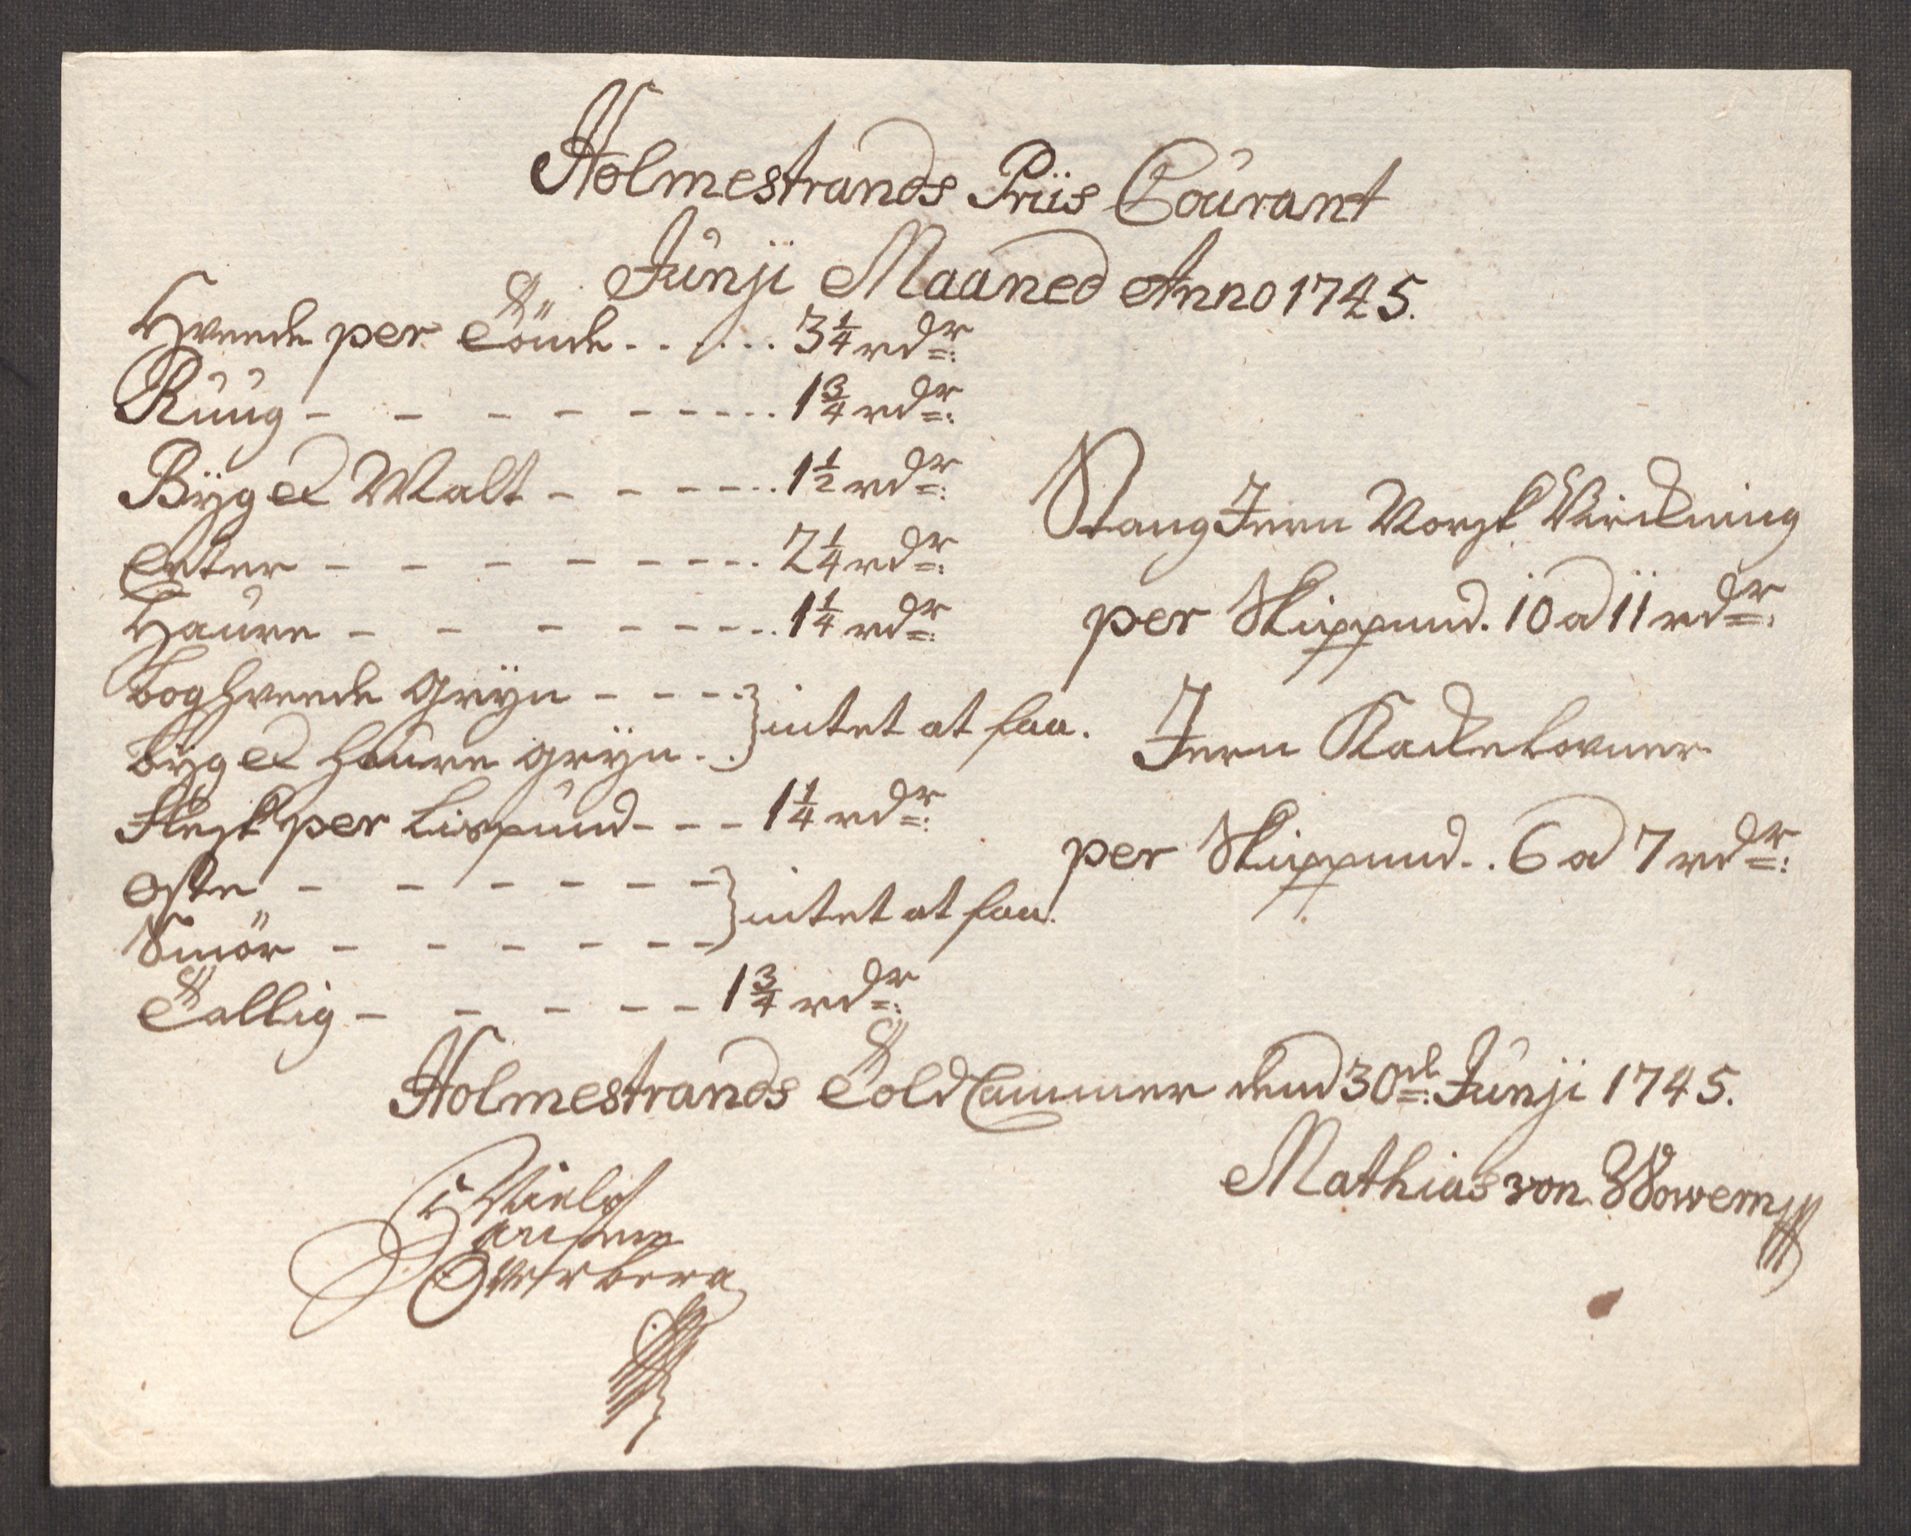 Holmestrands Priis Courant
Junji Maaned Anno 1745.
Hveede per Tönde . . . . . . 3¼ rdr:
Ruug - - - - - - - - . . . 1¾ rdr:
Byg et Malt - - - - - . . 1½ rdr:
Erter - - - - - - - - . 2¼ rdr:
Haure - - - - - - - - . . 1¼ rdr:
boghveede gryn - - - -
byg et haure gryn . . } intet at faa.
Flesk per Lispund - - - 1¼ rdr:
Oste - - - - - - -
Smör - - - - - - - } intet at faa.
Tallig - - - - - - 1¾ rdr:
Stang Jern Norsk Virckning
per Skippund. 10 a 11 rdr:
Jern Kackelovner
per Skippund. . 6 a 7 rdr:
Holmestrands Told Cammer dend 30de: Junji 1745.
Mathias von Wowern
Niels
Hansen
Overberg